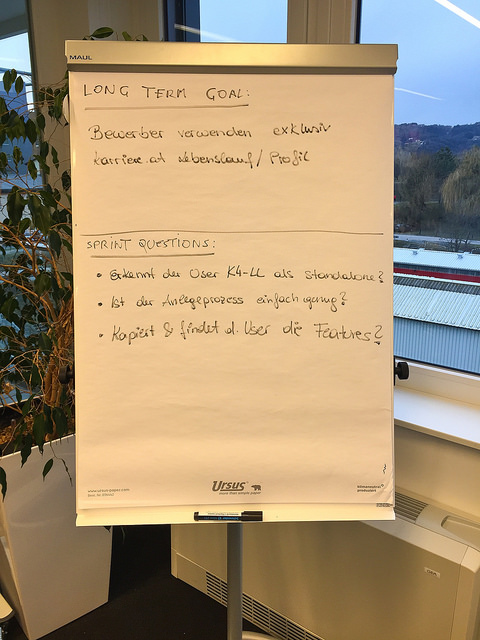 MAUL
LONG TERM GOAL:
Bewerber verwenden exklusiv
karriere.at Lebenslauf / Profil
SPRINT QUESTIONS:
• Erkennt der User K4-LL als Standalone?
• Ist der Anlegeprozess einfach genug?
• Kapiert & findet d. User die Features?
Ursus
more than simple paper